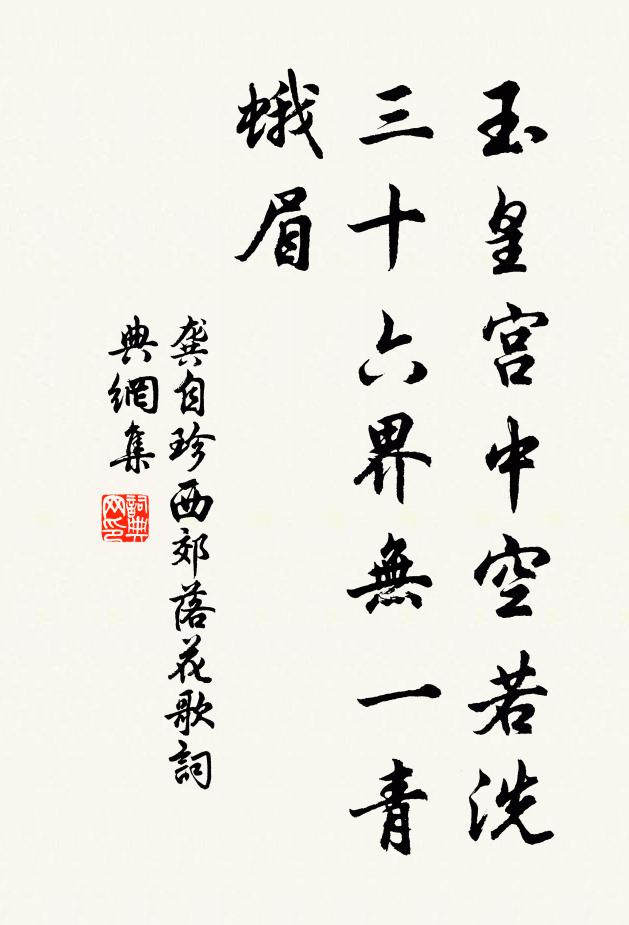 玉皇宮中空若洗
三十六界無一青
蛾眉
龔自珍西郊落花歌詞
典網集
詞典网印